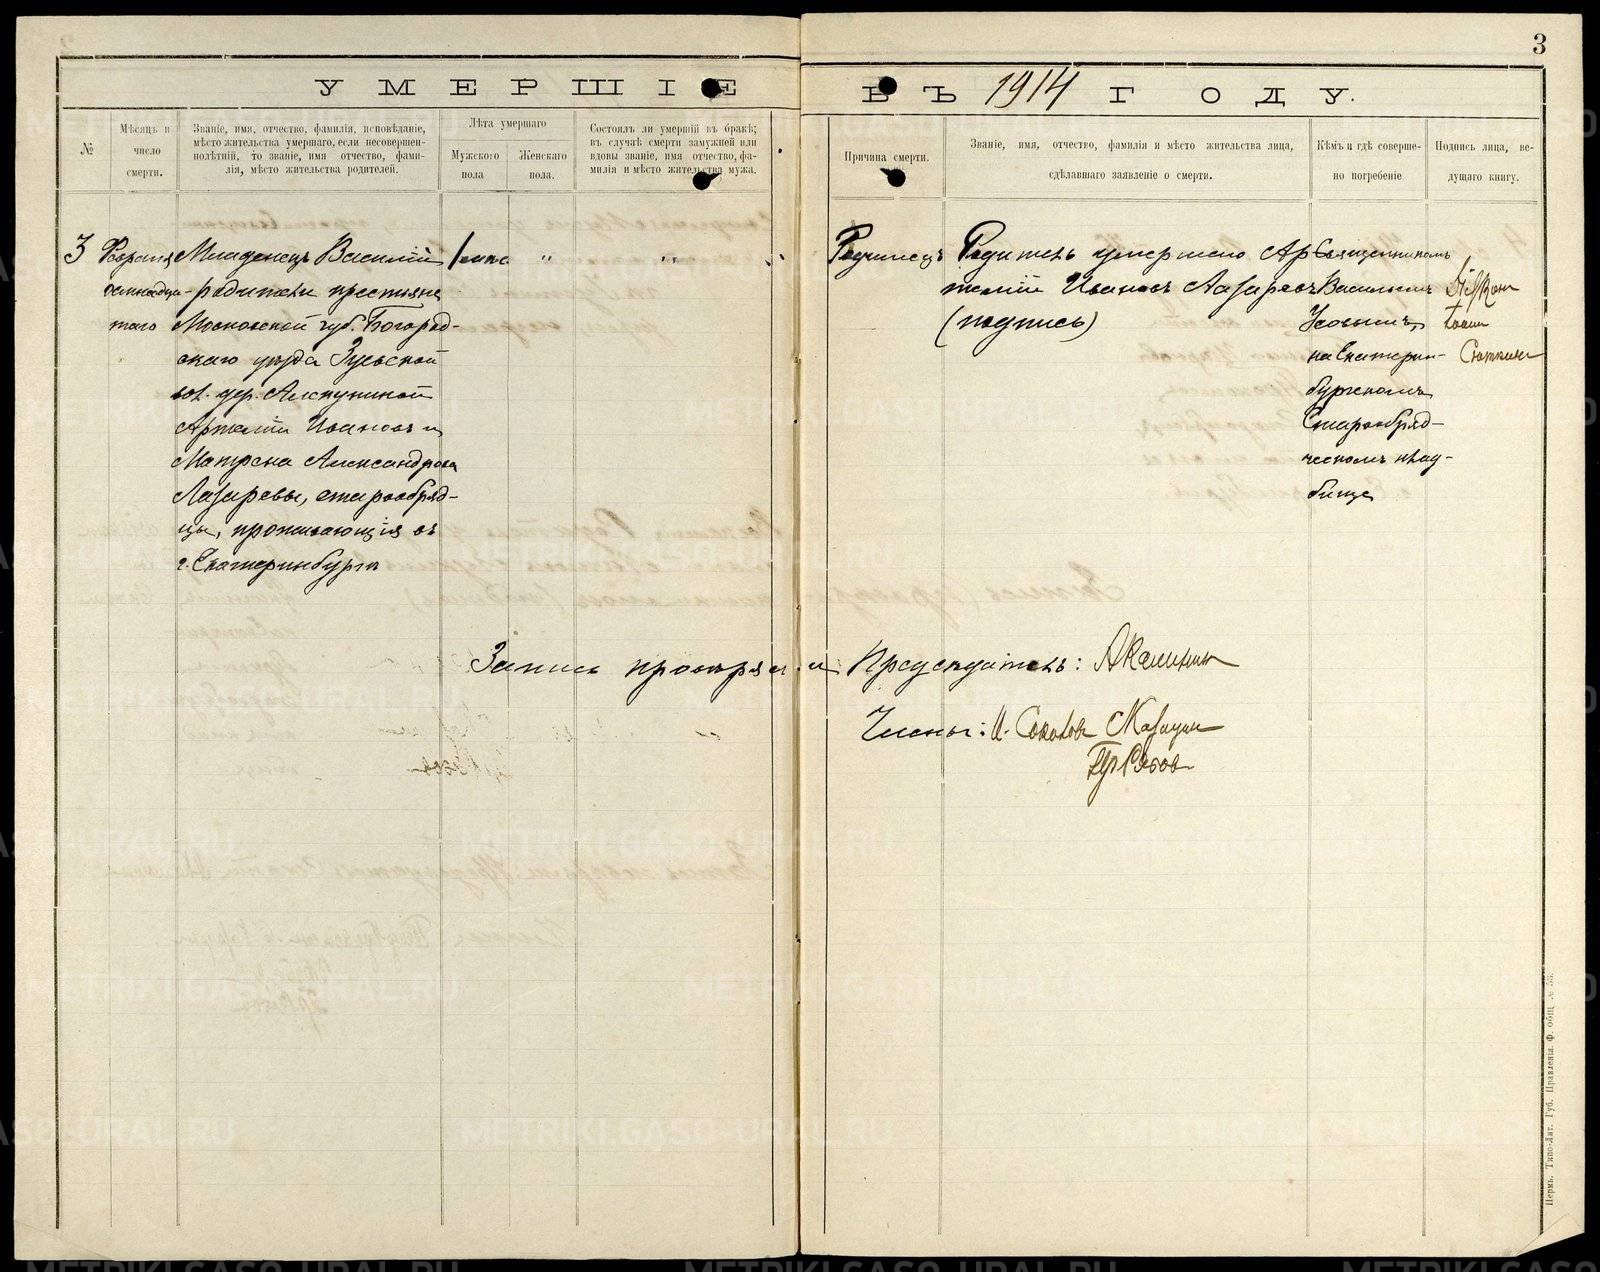 3
УМЕРШІЕ ВЪ 1914 ГОДУ.
№
Мѣсяцъ и
число
смерти.
Званіе, имя, отчество, фамилія, исповѣданіе,
мѣсто жительства умершаго, если несовершен-
нолѣтній, то званіе, имя отчество, фами-
лія, мѣсто жительства родителей.
Лѣта умершаго
Мужского
пола
Женскаго
пола.
Состоялъ ли умершій въ бракѣ;
въ случаѣ смерти замужней или
вдовы званіе, имя отчество, фа-
милія и мѣсто жительства мужа.
Причина смерти.
Званіе, имя, отчество, фамилія и мѣсто жительства лица,
сдѣлавшаго заявленіе о смерти.
Кѣмъ и гдѣ соверше-
но погребеніе
Подпись лица, ве-
дущаго книгу.
3
Февраля
осмнадца-
таго
Младенецъ Василій
родители крестьяне
Московской губ. Богород-
скаго уѣзда
вол. дер.
Артемій Ивановъ и
Матрена Александрова
Лазаревы, старообряд-
цы, проживающіе въ
г. Екатеринбургѣ
"
"
Родимецъ
Родитель умершаго Ар-
темій Ивановъ Лазаревъ
(подпись)
Священникомъ
Василіемъ
на Екатерин-
бургскомъ
Старообряд-
ческомъ клад-
бищѣ
Запись провѣряли: Предсѣдатель: А Калинин
Члены: И. Соколов